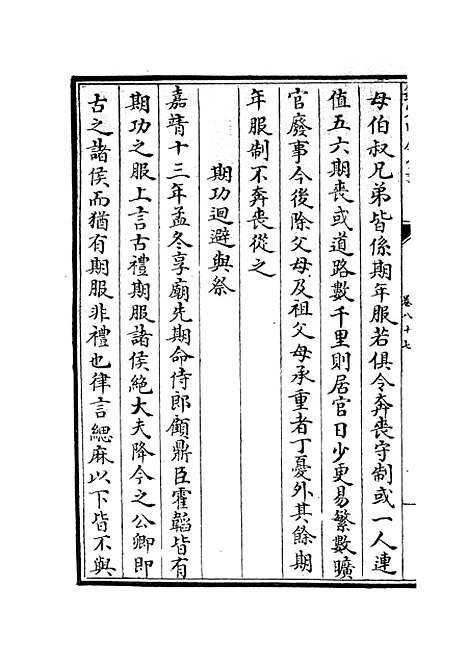 母伯叔兄弟皆係期年服若俱令奔喪守制或一人連
值五六期喪或道路數千里則居官日少更易繁數曠
官廢事今後除父母及祖父母承重者丁憂外其餘期
年服制不奔喪從之
期功迴避與祭
嘉靖十三年孟冬享廟先期命侍郎顧鼎臣霍韜皆有
期功之服上言古禮期服諸侯絶大夫降今之公卿即
古之諸侯而猶有期服非禮也律言緦麻以下皆不與
卷八十七